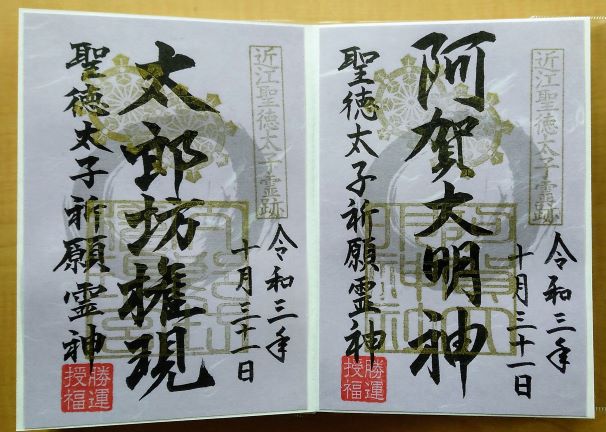 近江聖徳太子霊跡
令和三年
十月三十一日
阿賀大明神
聖徳太子祈願霊神
勝運
授福
近江聖徳太子霊跡
令和三年
十月三十一日
太郎坊権現
聖徳太子祈願霊神
勝運
授福